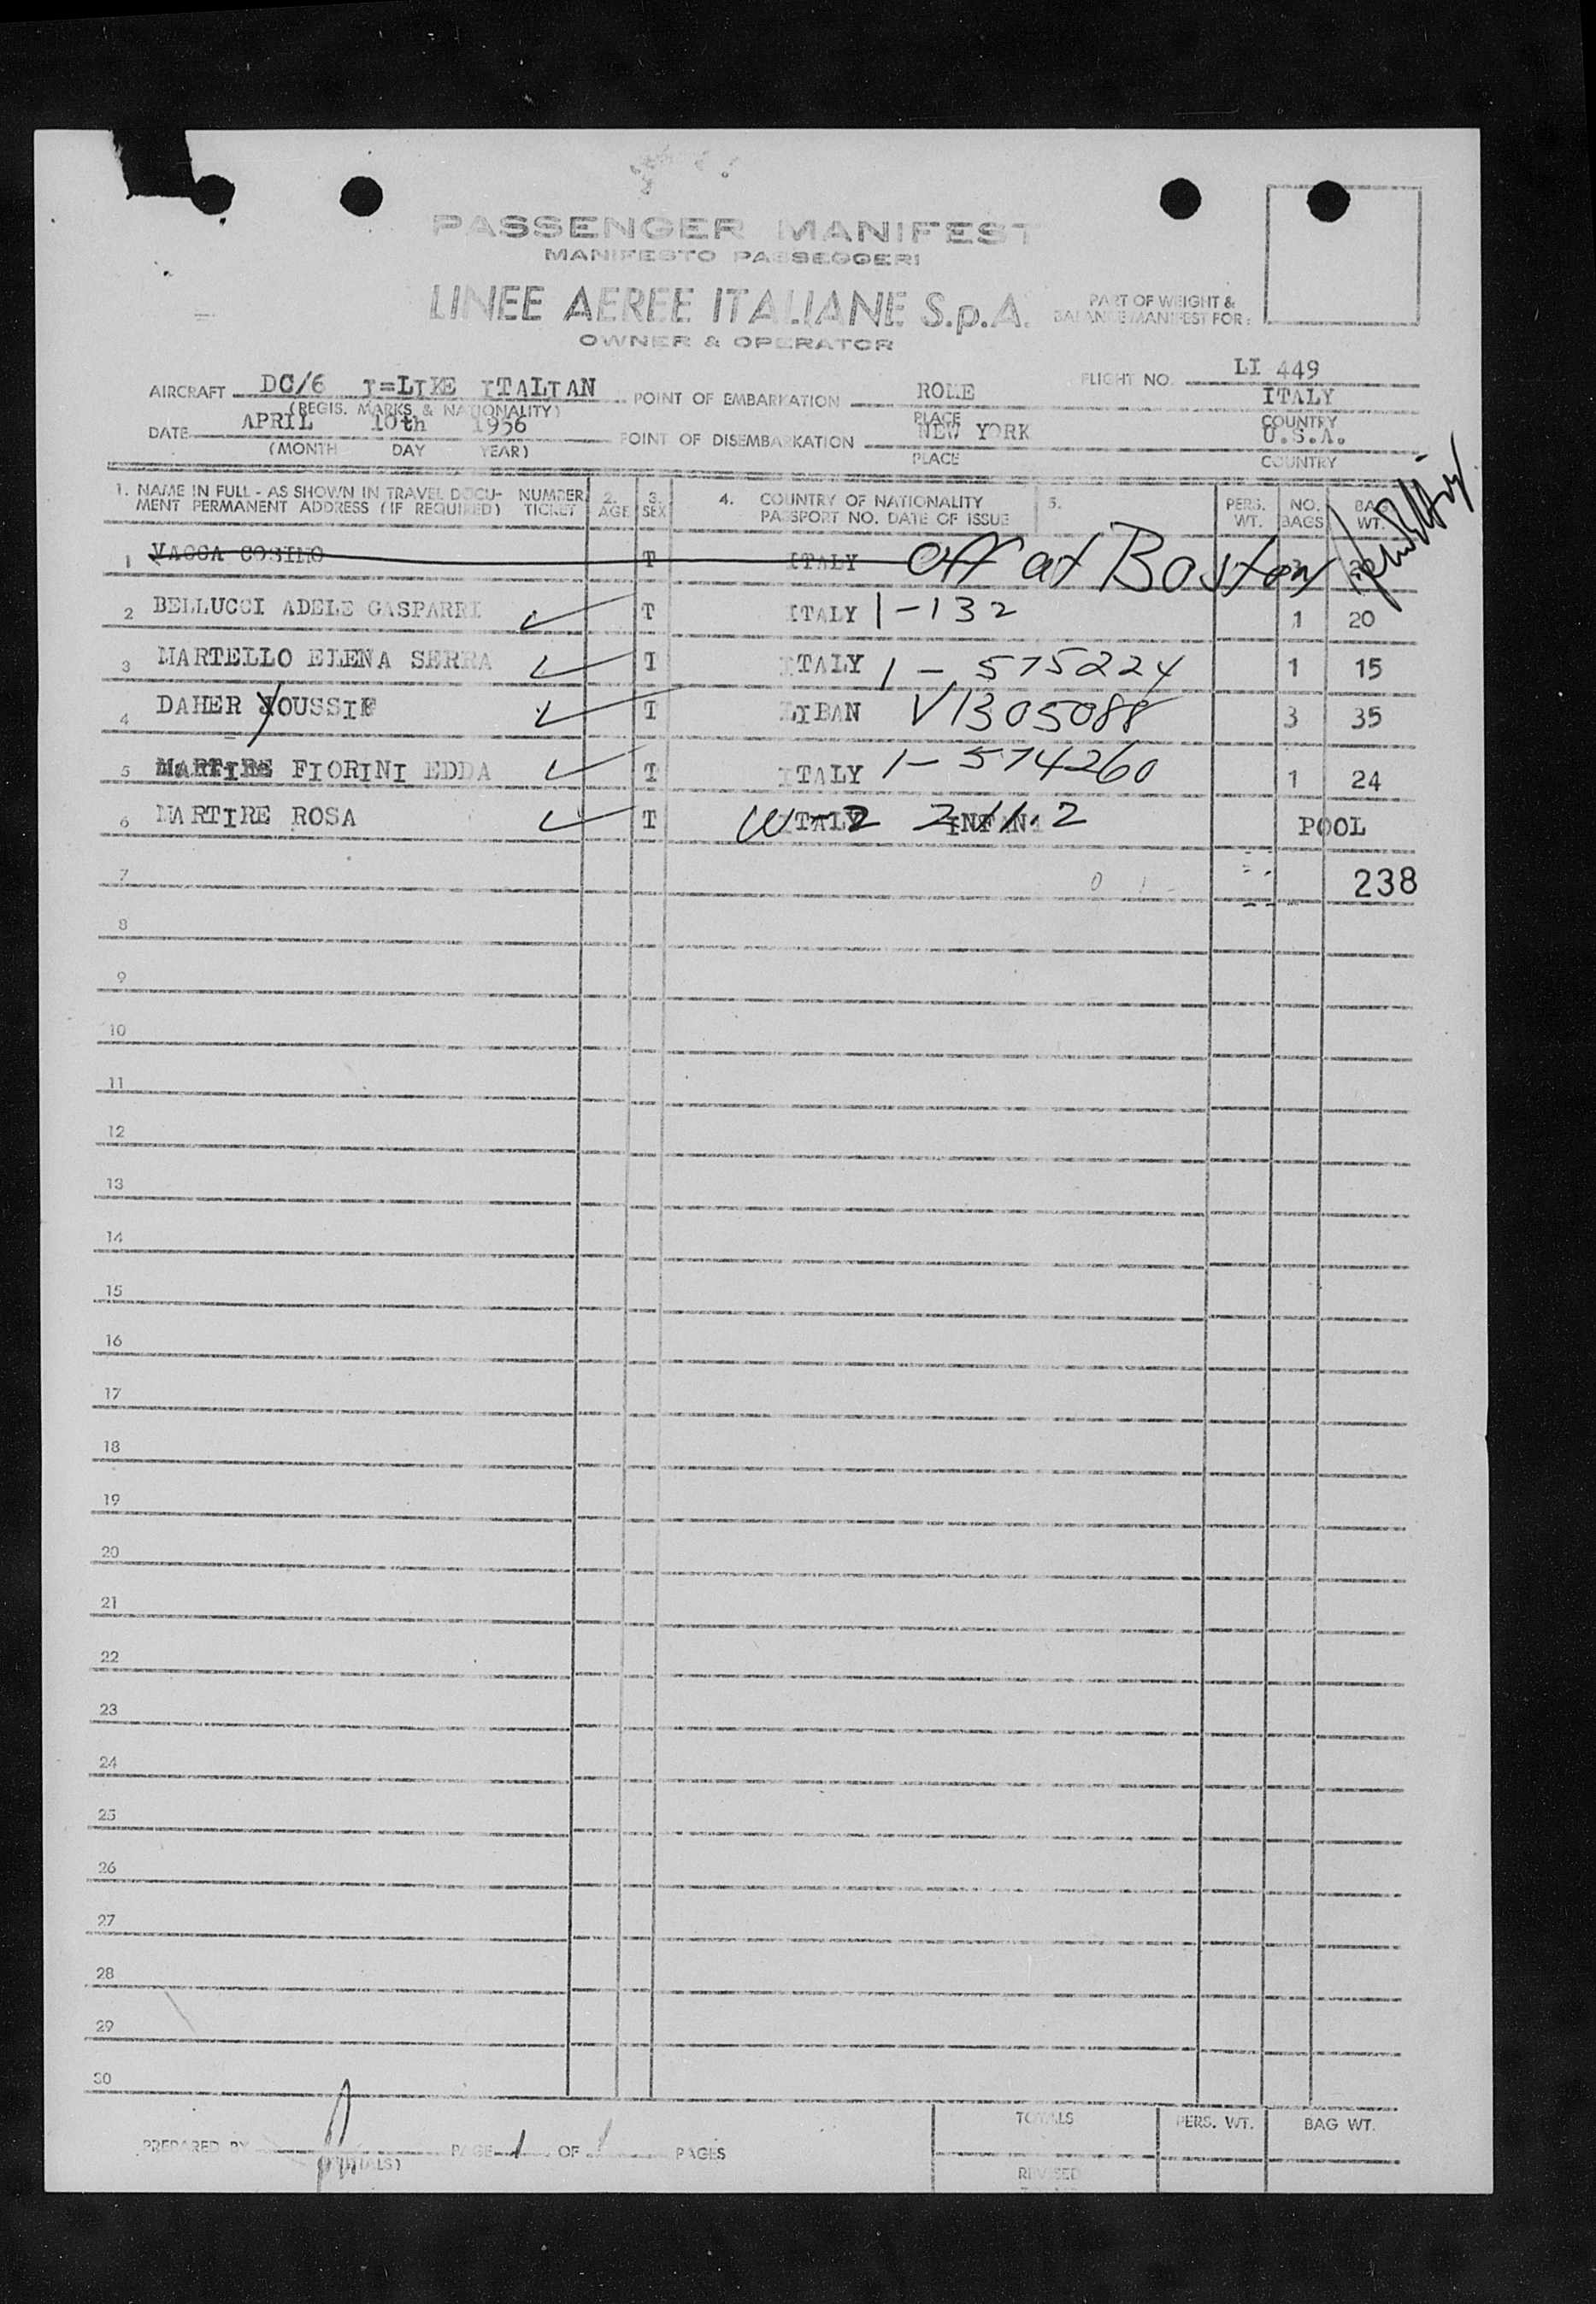 PASSENGER MANIFEST
MANIFESTO PASSEGGERI
LINEE AEREE ITALIANE S.p.A.
OWNER & OPERATOR
PART OF WEIGHT &
BALANCE MANIFEST FOR:
AIRCRAFT DC/6 I=LIKE ITALIAN POINT OF EMBARKATION ROME FLIGHT NO. LI 449
ITALY
(REGIS. MARKS & NATIONALITY) PLACE COUNTRY
DATE APRIL 10th 1956 POINT OF DISEMBARKATION NEW YORK U.S.A.
(MONTH DAY YEAR) PLACE COUNTRY
1. NAME IN FULL - AS SHOWN IN TRAVEL DOCU- NUMBER 2. 3. 4. COUNTRY OF NATIONALITY 5. PERS. NO. BAG
MENT PERMANENT ADDRESS (IF REQUIRED) TICKET AGE SEX PASSPORT NO. DATE OF ISSUE WT. BAGS WT.
1 VACCA COSIMO T ITALY Off at Boston
2 BELLUCCI ADELE GASPARRI T ITALY 1-132 1 20
3 MARTELLO ELENA SERRA I ITALY 1-575224 1 15
4 DAHER YOUSSIF I LIBAN V1305088 3 35
5 MARTIRE FIORINI EDDA T ITALY 1-574260 1 24
6 MARTIRE ROSA T ITALY INFANT POOL
7 238
8
9
10
11
12
13
14
15
16
17
18
19
20
21
22
23
24
25
26
27
28
29
30
TOTALS PERS. WT. BAG WT.
PREPARED BY PAGE 1 OF 1 PAGES
(INITIALS)
REVISED